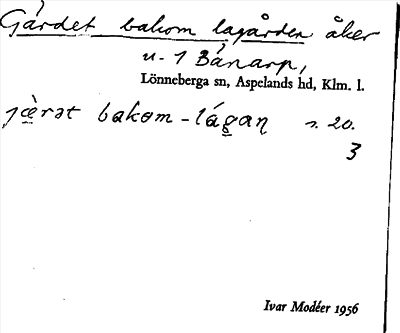 Gärdet bakom lagården åker
u. 1 Bánarp,
Lönneberga sn, Aspelands hd, Klm. l.
jæ̀rət bakom-lágan s. 20.
3
Ivar Modéer 1956